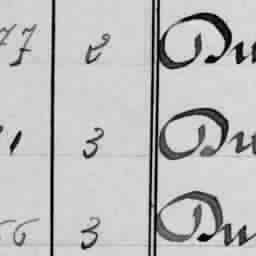 77 2 Du
1 3 Du
56 3 Du